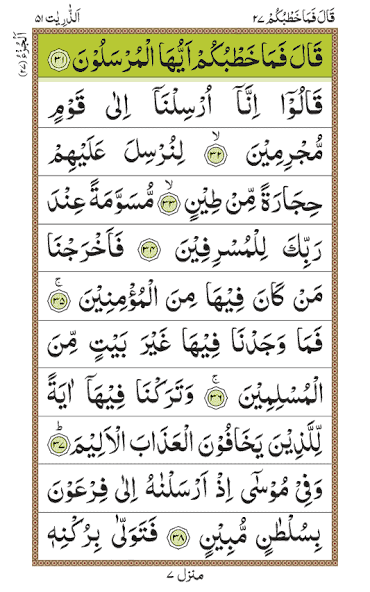 قَالَ فَمَا خَطْبُكُمْ ٢٧ اَلذّٰرِيٰت ٥١
اَلْجُزْءُ (٢٧)
قَالَ فَمَا خَطْبُكُمْ اَيُّهَا الْمُرْسَلُوْنَ ﴿٣١﴾
قَالُوْٓا اِنَّآ اُرْسِلْنَآ اِلٰى قَوْمٍ
مُّجْرِمِيْنَ ۙ﴿٣٢﴾ لِنُرْسِلَ عَلَيْهِمْ
حِجَارَةً مِّنْ طِيْنٍ ۙ﴿٣٣﴾ مُّسَوَّمَةً عِنْدَ
رَبِّكَ لِلْمُسْرِفِيْنَ ﴿٣٤﴾ فَاَخْرَجْنَا
مَنْ كَانَ فِيْهَا مِنَ الْمُؤْمِنِيْنَ ۚ﴿٣٥﴾
فَمَا وَجَدْنَا فِيْهَا غَيْرَ بَيْتٍ مِّنَ
الْمُسْلِمِيْنَ ۚ﴿٣٦﴾ وَتَرَكْنَا فِيْهَآ اٰيَةً
لِّلَّذِيْنَ يَخَافُوْنَ الْعَذَابَ الْاَلِيْمَ ؕ﴿٣٧﴾
وَفِيْ مُوْسٰٓى اِذْ اَرْسَلْنٰهُ اِلٰى فِرْعَوْنَ
بِسُلْطٰنٍ مُّبِيْنٍ ﴿٣٨﴾ فَتَوَلّٰى بِرُكْنِهٖ
منزل ٧